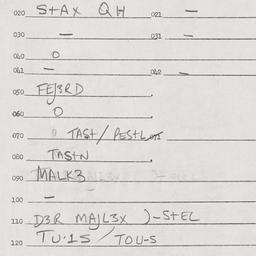 020 StAX QH 021 —
030 — 031 —
040 O
041 — 042 —
050 FEJ3RD
060 O
070 0 TASt / PEStL
080 TAStN
090 MALK3
100 —
110 D3R MAJL3X )-StEL
120 TU·1S / TOU-S